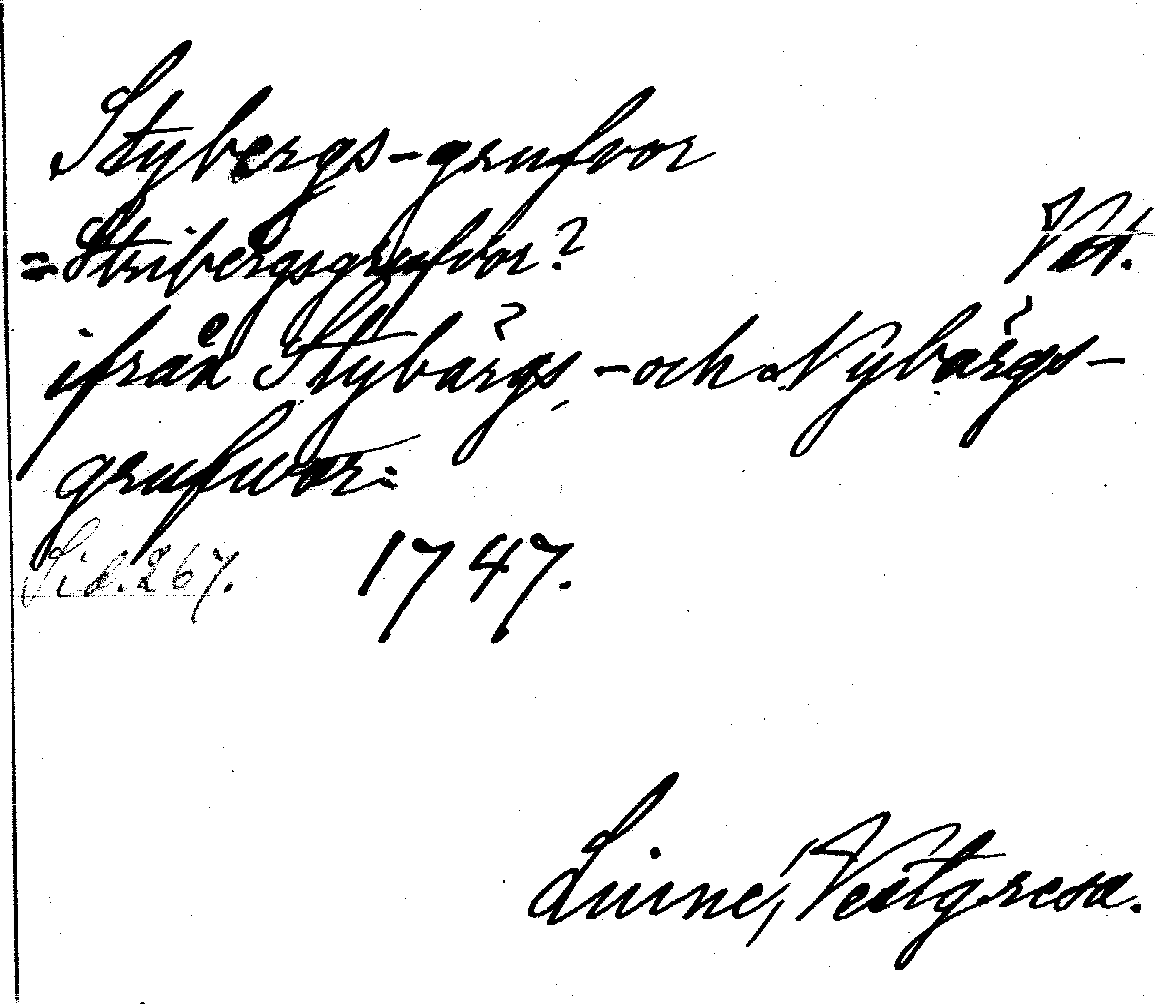 Stybergs-grufvor
=Stribergsgrufvor? Vst.
ifrån Stybärgs, - och Nybärgs-
grufwor:
Sid. 267. 1747.
Linné, Vestgresa.